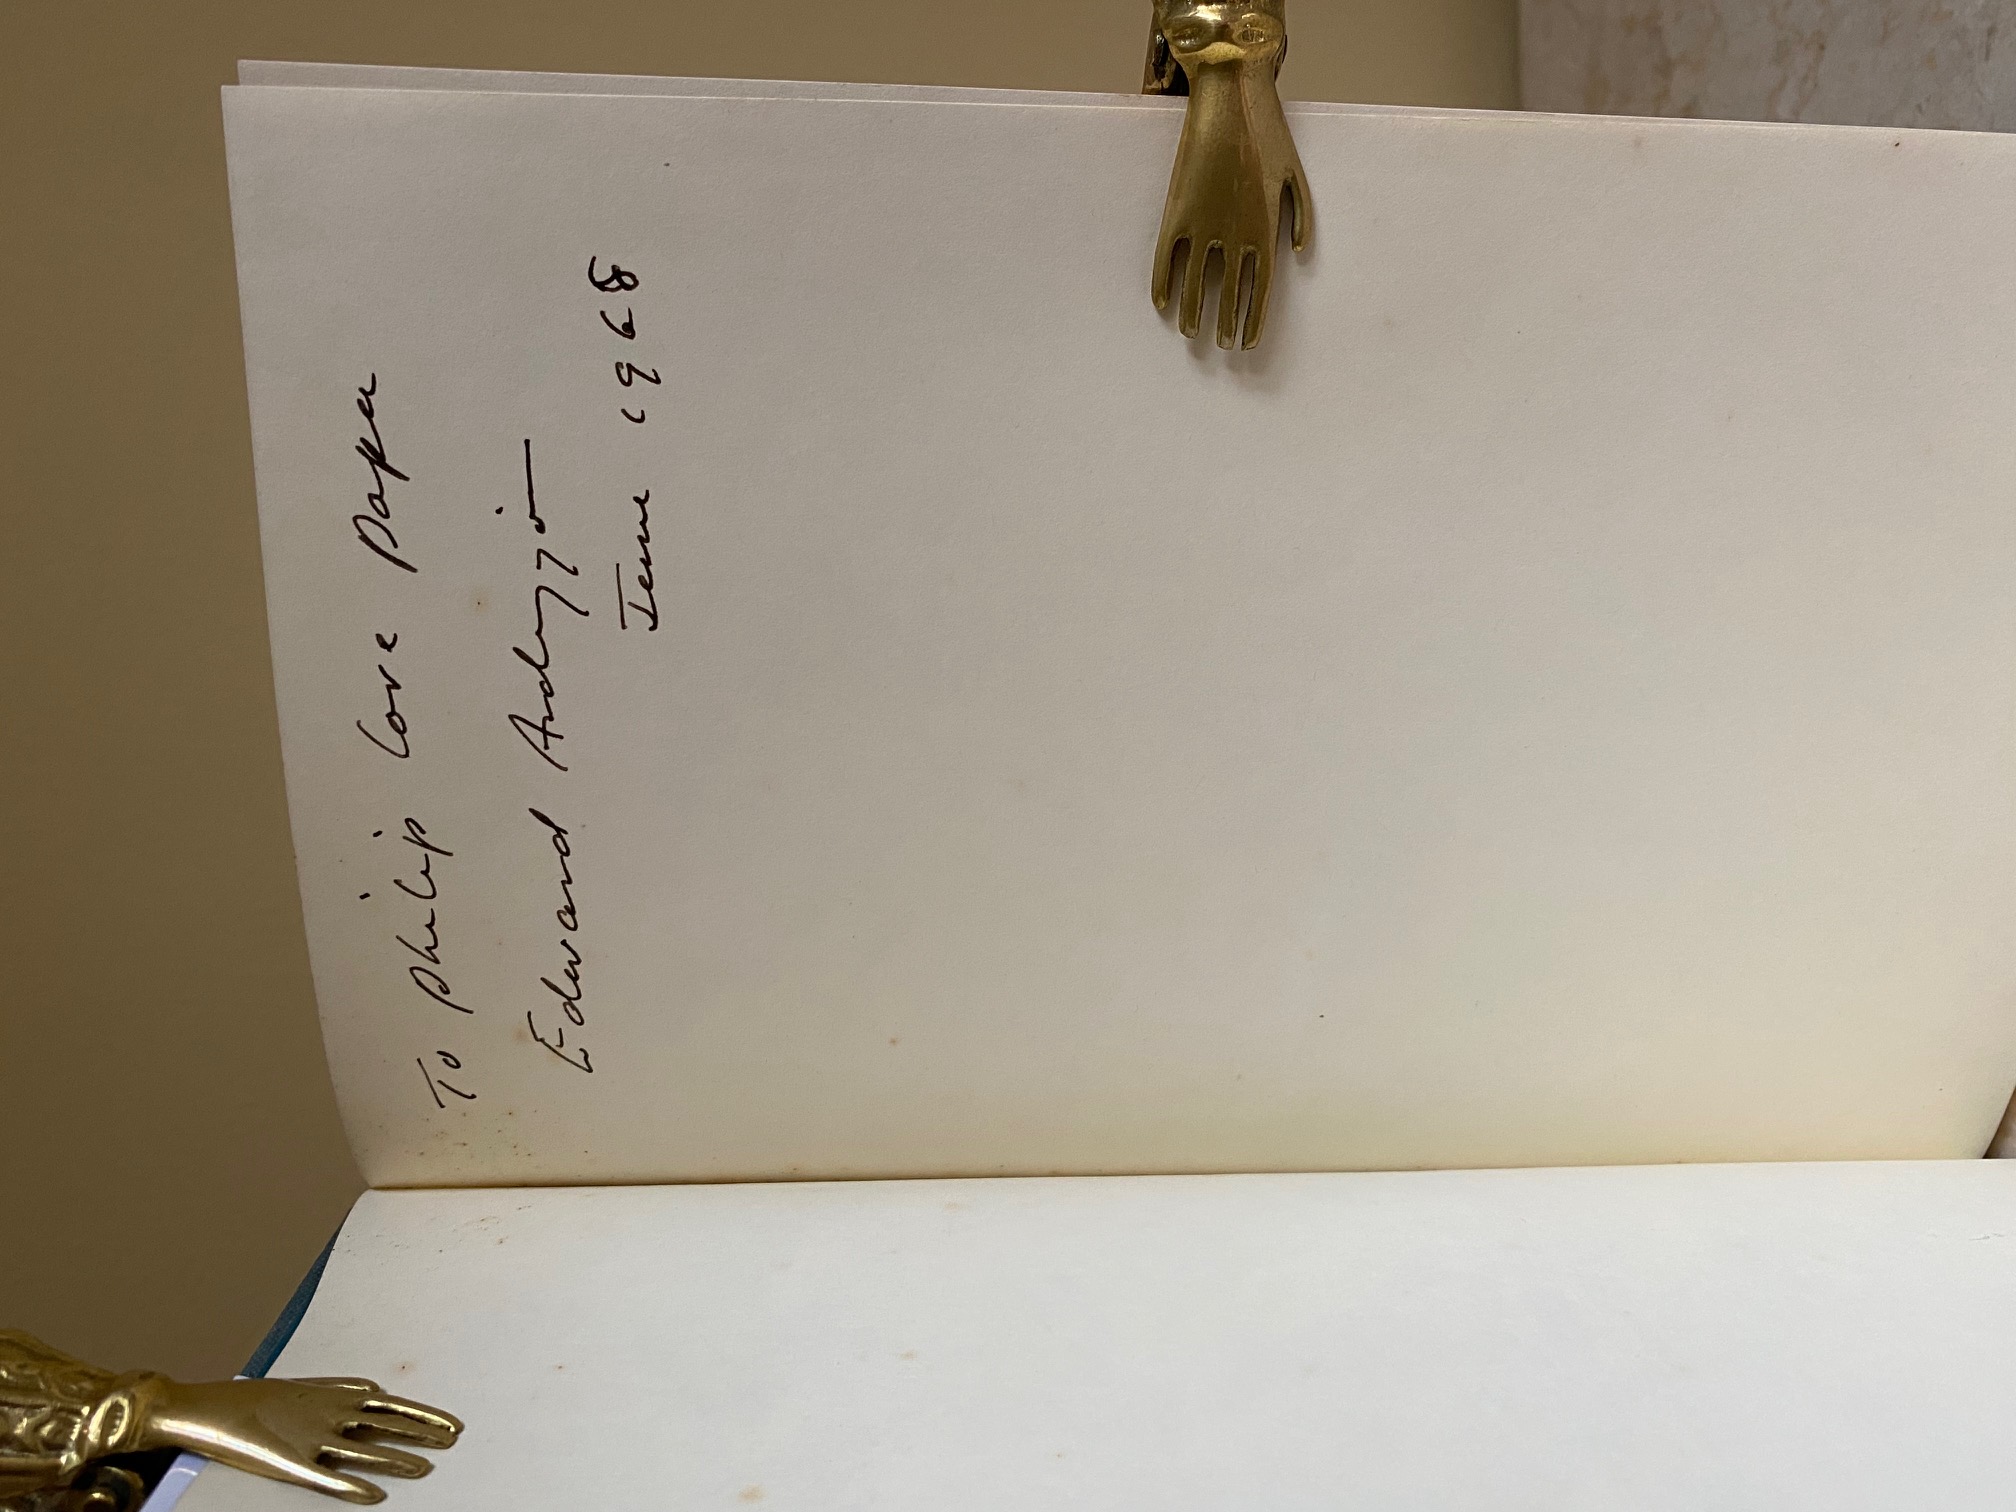 To Philip Love Papa
Edward Ardizzone
June 1968